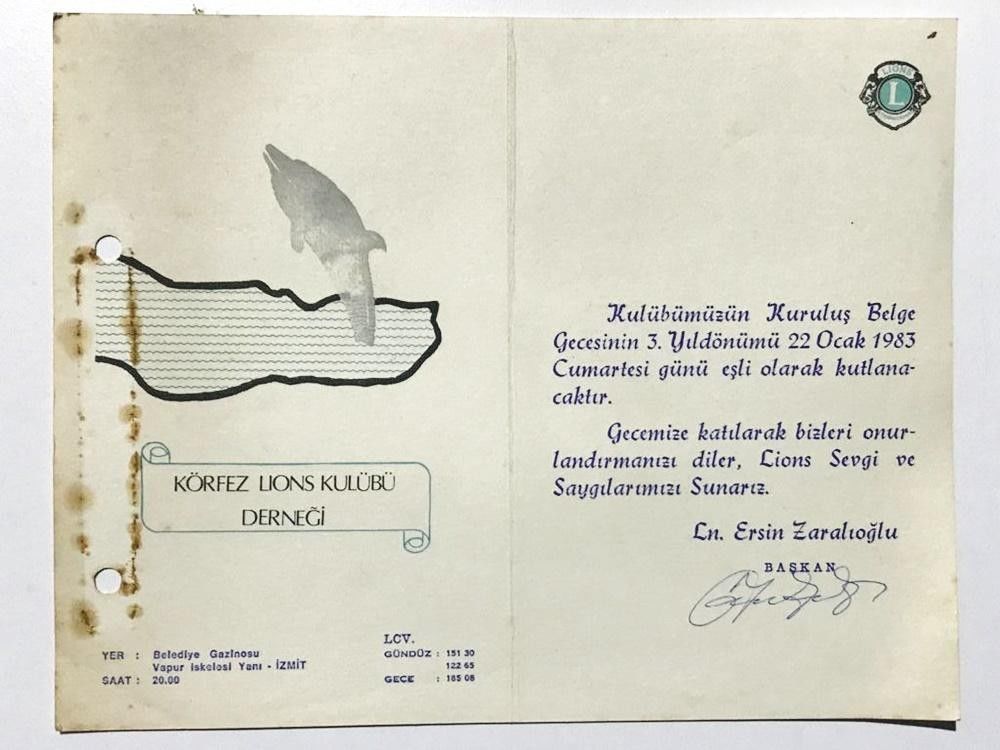 KÖRFEZ LIONS KULÜBÜ
DERNEĞİ
YER : Belediye Gazinosu
Vapur iskelesi Yanı - İZMİT
SAAT : 20.00
LCV.
GÜNDÜZ : 151 30
122 65
GECE : 165 08
LIONS
L
Kulübümüzün Kuruluş Belge
Gecesinin 3. Yıldönümü 22 Ocak 1983
Cumartesi günü eşli olarak kutlana-
caktır.
Gecemize katılarak bizleri onur-
landırmanızı diler, Lions Sevgi ve
Saygılarımızı Sunarız.
Ln. Ersin Zaralıoğlu
BAŞKAN